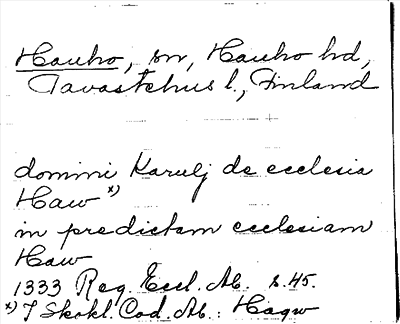 Hauho, sn, Hauho hd,
Tavastehus l., Finland
domini Karulj de ecclesia
Haw x)
in predictam ecclesiam
Haw
1333 Reg. Eccl. Ab. s. 45.
x) I Skokl. Cod. Ab.: Hagw